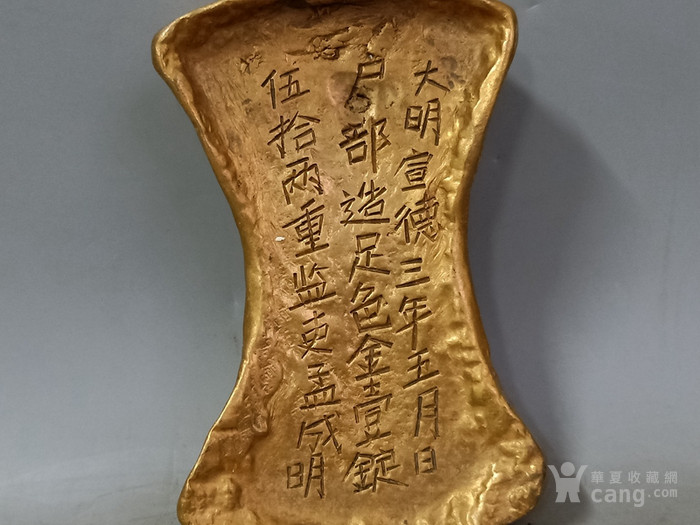 大明宣德三年五月日
户部造足色金壹錠
伍拾两重监吏孟成明
華夏收藏網
cang.com